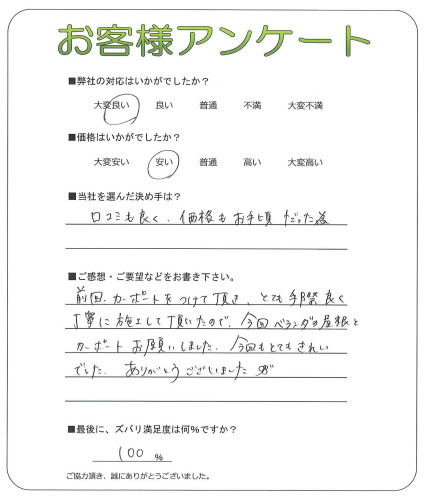 お客様アンケート
■弊社の対応はいかがでしたか?
大変良い 良い 普通 不満 大変不満
■価格はいかがでしたか?
大変安い 安い 普通 高い 大変高い
■当社を選んだ決め手は?
口コミも良く、価格もお手頃だった為
■ご感想・ご要望などをお書き下さい。
前回、カーポートをつけて頂き、とても手際良く
丁寧に施工して頂いたので、今回ベランダの屋根と
カーポートお願いしました。今回もとてもきれい
でした。ありがとうございました
■最後に、ズバリ満足度は何%ですか?
100 %
ご協力頂き、誠にありがとうございました。